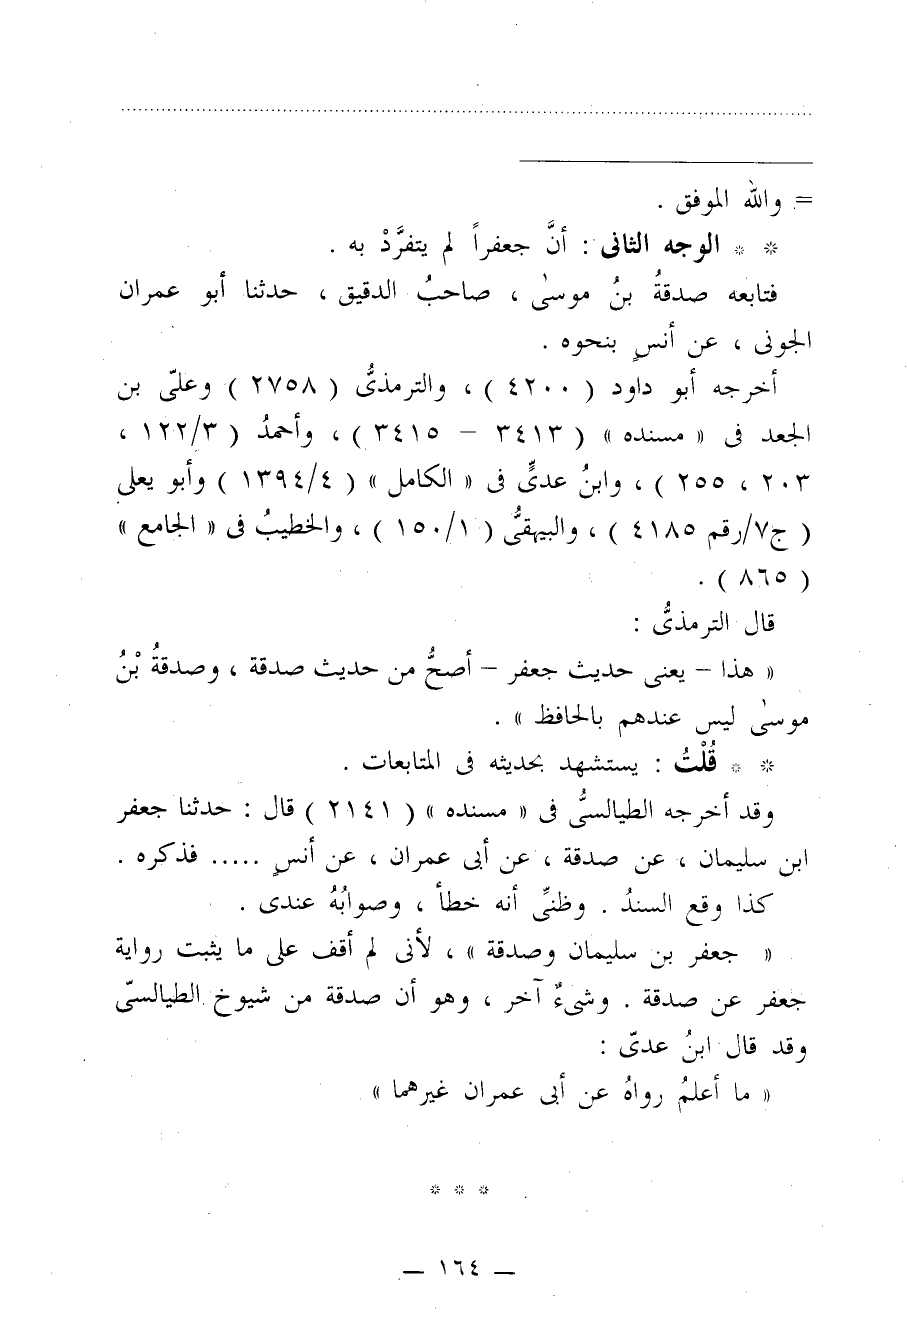 = والله الموفق .
* * الوجه الثانى : أنَّ جعفراً لم يتفرَّدْ به .
فتابعه صدقةُ بنُ موسىٰ ، صاحبُ الدقيق ، حدثنا أبو عمران
الجونى ، عن أنسٍ بنحوه .
أخرجه أبو داود ( ٤٢٠٠ ) ، والترمذىُّ ( ٢٧٥٨ ) وعلىّ بن
الجعد فى « مسنده » ( ٣٤١٣ – ٣٤١٥ ) ، وأحمدُ ( ١٢٢/٣ ،
٢٠٣ ، ٢٥٥ ) ، وابنُ عدىٍّ فى « الكامل » ( ١٣٩٤/٤ ) وأبو يعلى
( ج٧/رقم ٤١٨٥ ) ، والبيهقىُّ ( ١٥٠/١ ) ، والخطيبُ فى « الجامع »
( ٨٦٥ ) .
قال الترمذىُّ :
« هذا – يعنى حديث جعفر – أصحُّ من حديث صدقة ، وصدقةُ بْنُ
موسىٰ ليس عندهم بالحافظ » .
* * قُلْتُ : يستشهد بحديثه فى المتابعات .
وقد أخرجه الطيالسىُّ فى « مسنده » ( ٢١٤١ ) قال : حدثنا جعفر
ابن سليمان ، عن صدقة ، عن أبى عمران ، عن أنسٍ ..... فذكره .
كذا وقع السندُ . وظنىِّ أنه خطأ ، وصوابُهُ عندى .
« جعفر بن سليمان وصدقة » ، لأنى لم أقف على ما يثبت رواية
جعفر عن صدقة . وشىءٌ آخر ، وهو أن صدقة من شيوخ الطيالسىّ
وقد قال ابنُ عدىّ :
« ما أعلمُ رواهُ عن أبى عمران غيرهما »
* * *
— ١٦٤ —